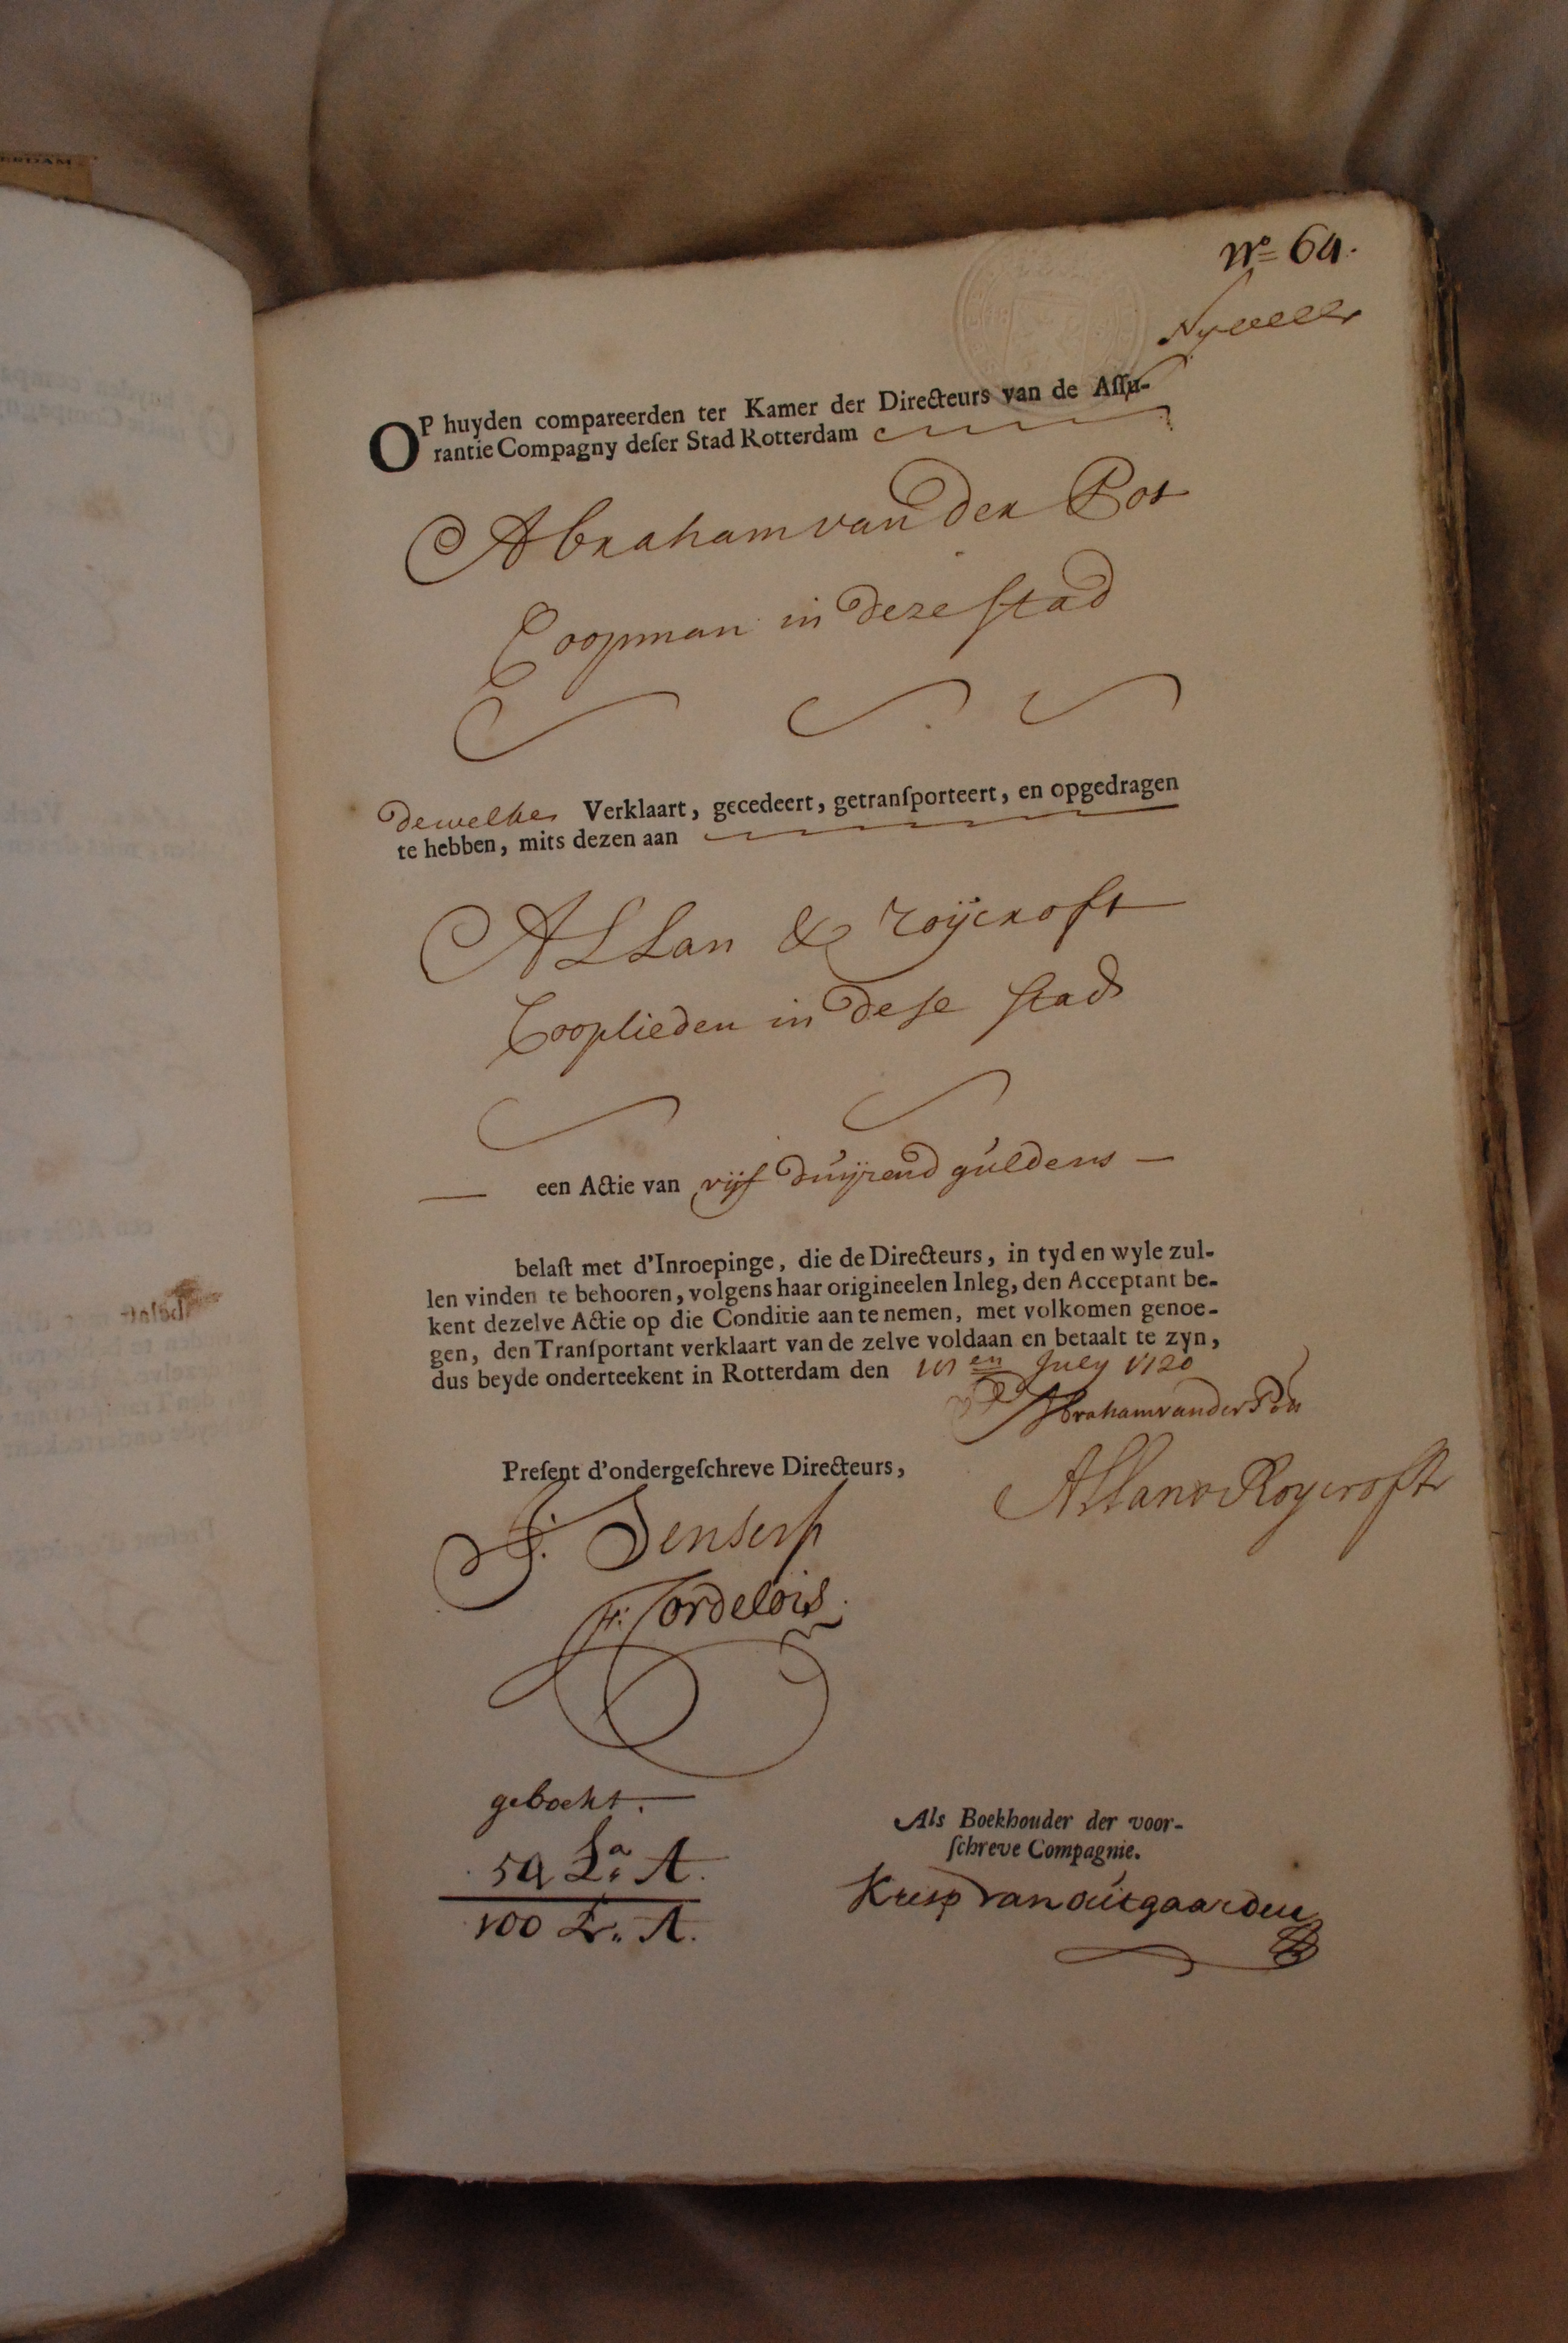 No 64.
OP huyden compareerden ter Kamer der Directeurs van de Aſſu-
rantie Compagny deſer Stad Rotterdam
Abraham van der Pot
Coopman in deze ſtad
dewelke Verklaart, gecedeert, getranſporteert, en opgedragen
te hebben, mits dezen aan
Allan & roÿcroft
Cooplieden in deſe ſtad
een Actie van vijf duijzend guldens
belaſt met d'Inroepinge, die de Directeurs, in tyd en wyle zul-
len vinden te behooren, volgens haar origineelen Inleg, den Acceptant be-
kent dezelve Actie op die Conditie aan te nemen, met volkomen genoe-
gen, den Tranſportant verklaart van de zelve voldaan en betaalt te zyn,
dus beyde onderteekent in Rotterdam den en July 1720
Abraham van der Pott
Preſent d'ondergeſchreve Directeurs,
Allan & Roycroft
J. Senserf
F. Cordelois.
geboekt.
Als Boekhouder der voor-
ſchreve Compagnie.
54 La A.
100 Lr. A.
van outgaarden